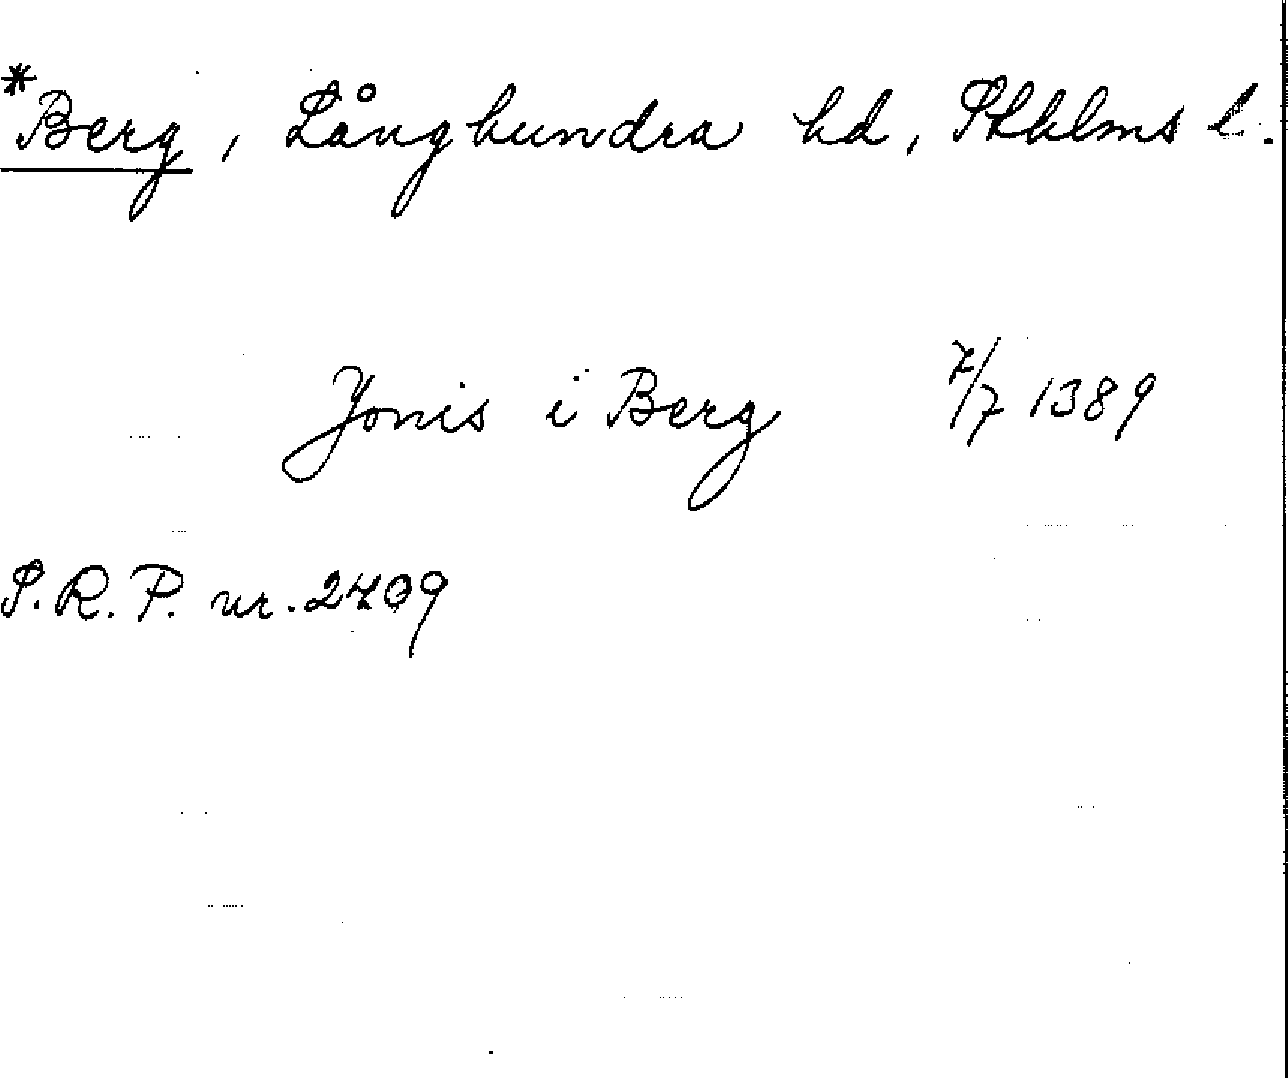 *Berg, Långhundra hd, Sthlms l.
Jonis i Berg 7/7 1389
S.R.P. nr. 2709